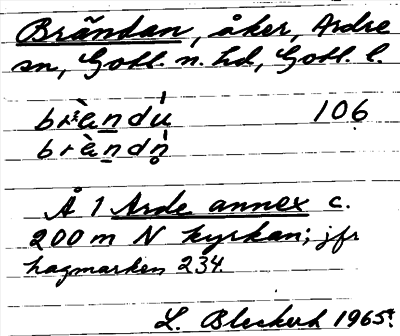 Brändan, åker, Ardre
sn, Gotl. n. hd, Gotl. l.
brändu 106
brändn
Å 1 Arde annex c.
200 m N kyrkan; jfr
hagmarken 234.
L. Bleckert 1965.